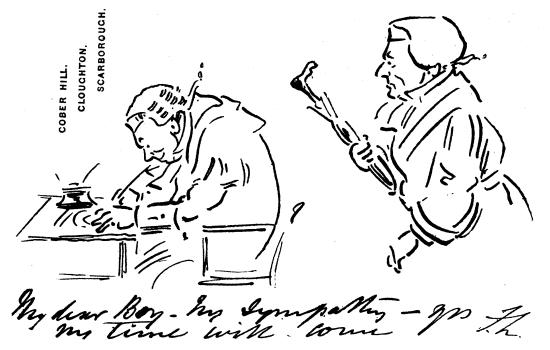 COBER HILL.
CLOUGHTON.
SCARBOROUGH.
My dear Boy - My Sympathy -
my time will come